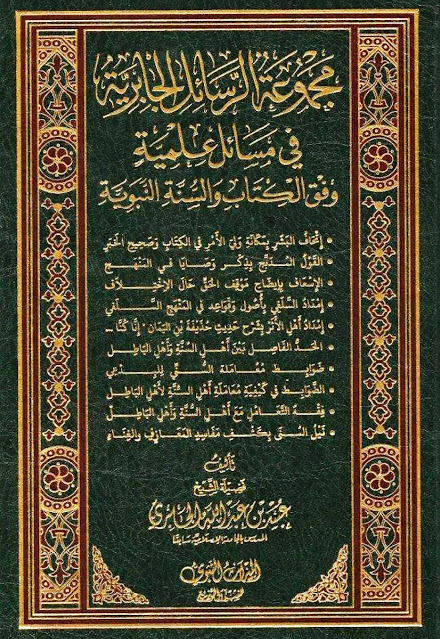 مجموعة الرسائل الجابرية
في مسائل علمية
وفق الكتاب والسنة النبوية
• إتحاف البشر بمكانة ولي الأمر في الكتاب وصحيح الخبر
• القول المدبج بذكر وصايا في المنهج
• الإسعاف بإيضاح موقف الحق حال الاختلاف
• إمداد السلفي بأصول وقواعد في المنهج السلفي
• إمداد أهل الأثر بشرح حديث حذيفة بن اليمان - إنا كنا ...
• الحد الفاصل بين أهل السنة وأهل الباطل
• ضوابط معاملة السني للبدعي
• الضوابط في كيفية معاملة أهل السنة لأهل الباطل
• فقه التعامل مع أهل السنة وأهل الباطل
• نيل المنى بكشف مفاسد المعازف والغناء
تأليف
فضيلة الشيخ
عبيد بن عبد الله الجابري
المدرس بالجامعة الإسلامية سابقا
الميراث النبوي
للنشر والتوزيع